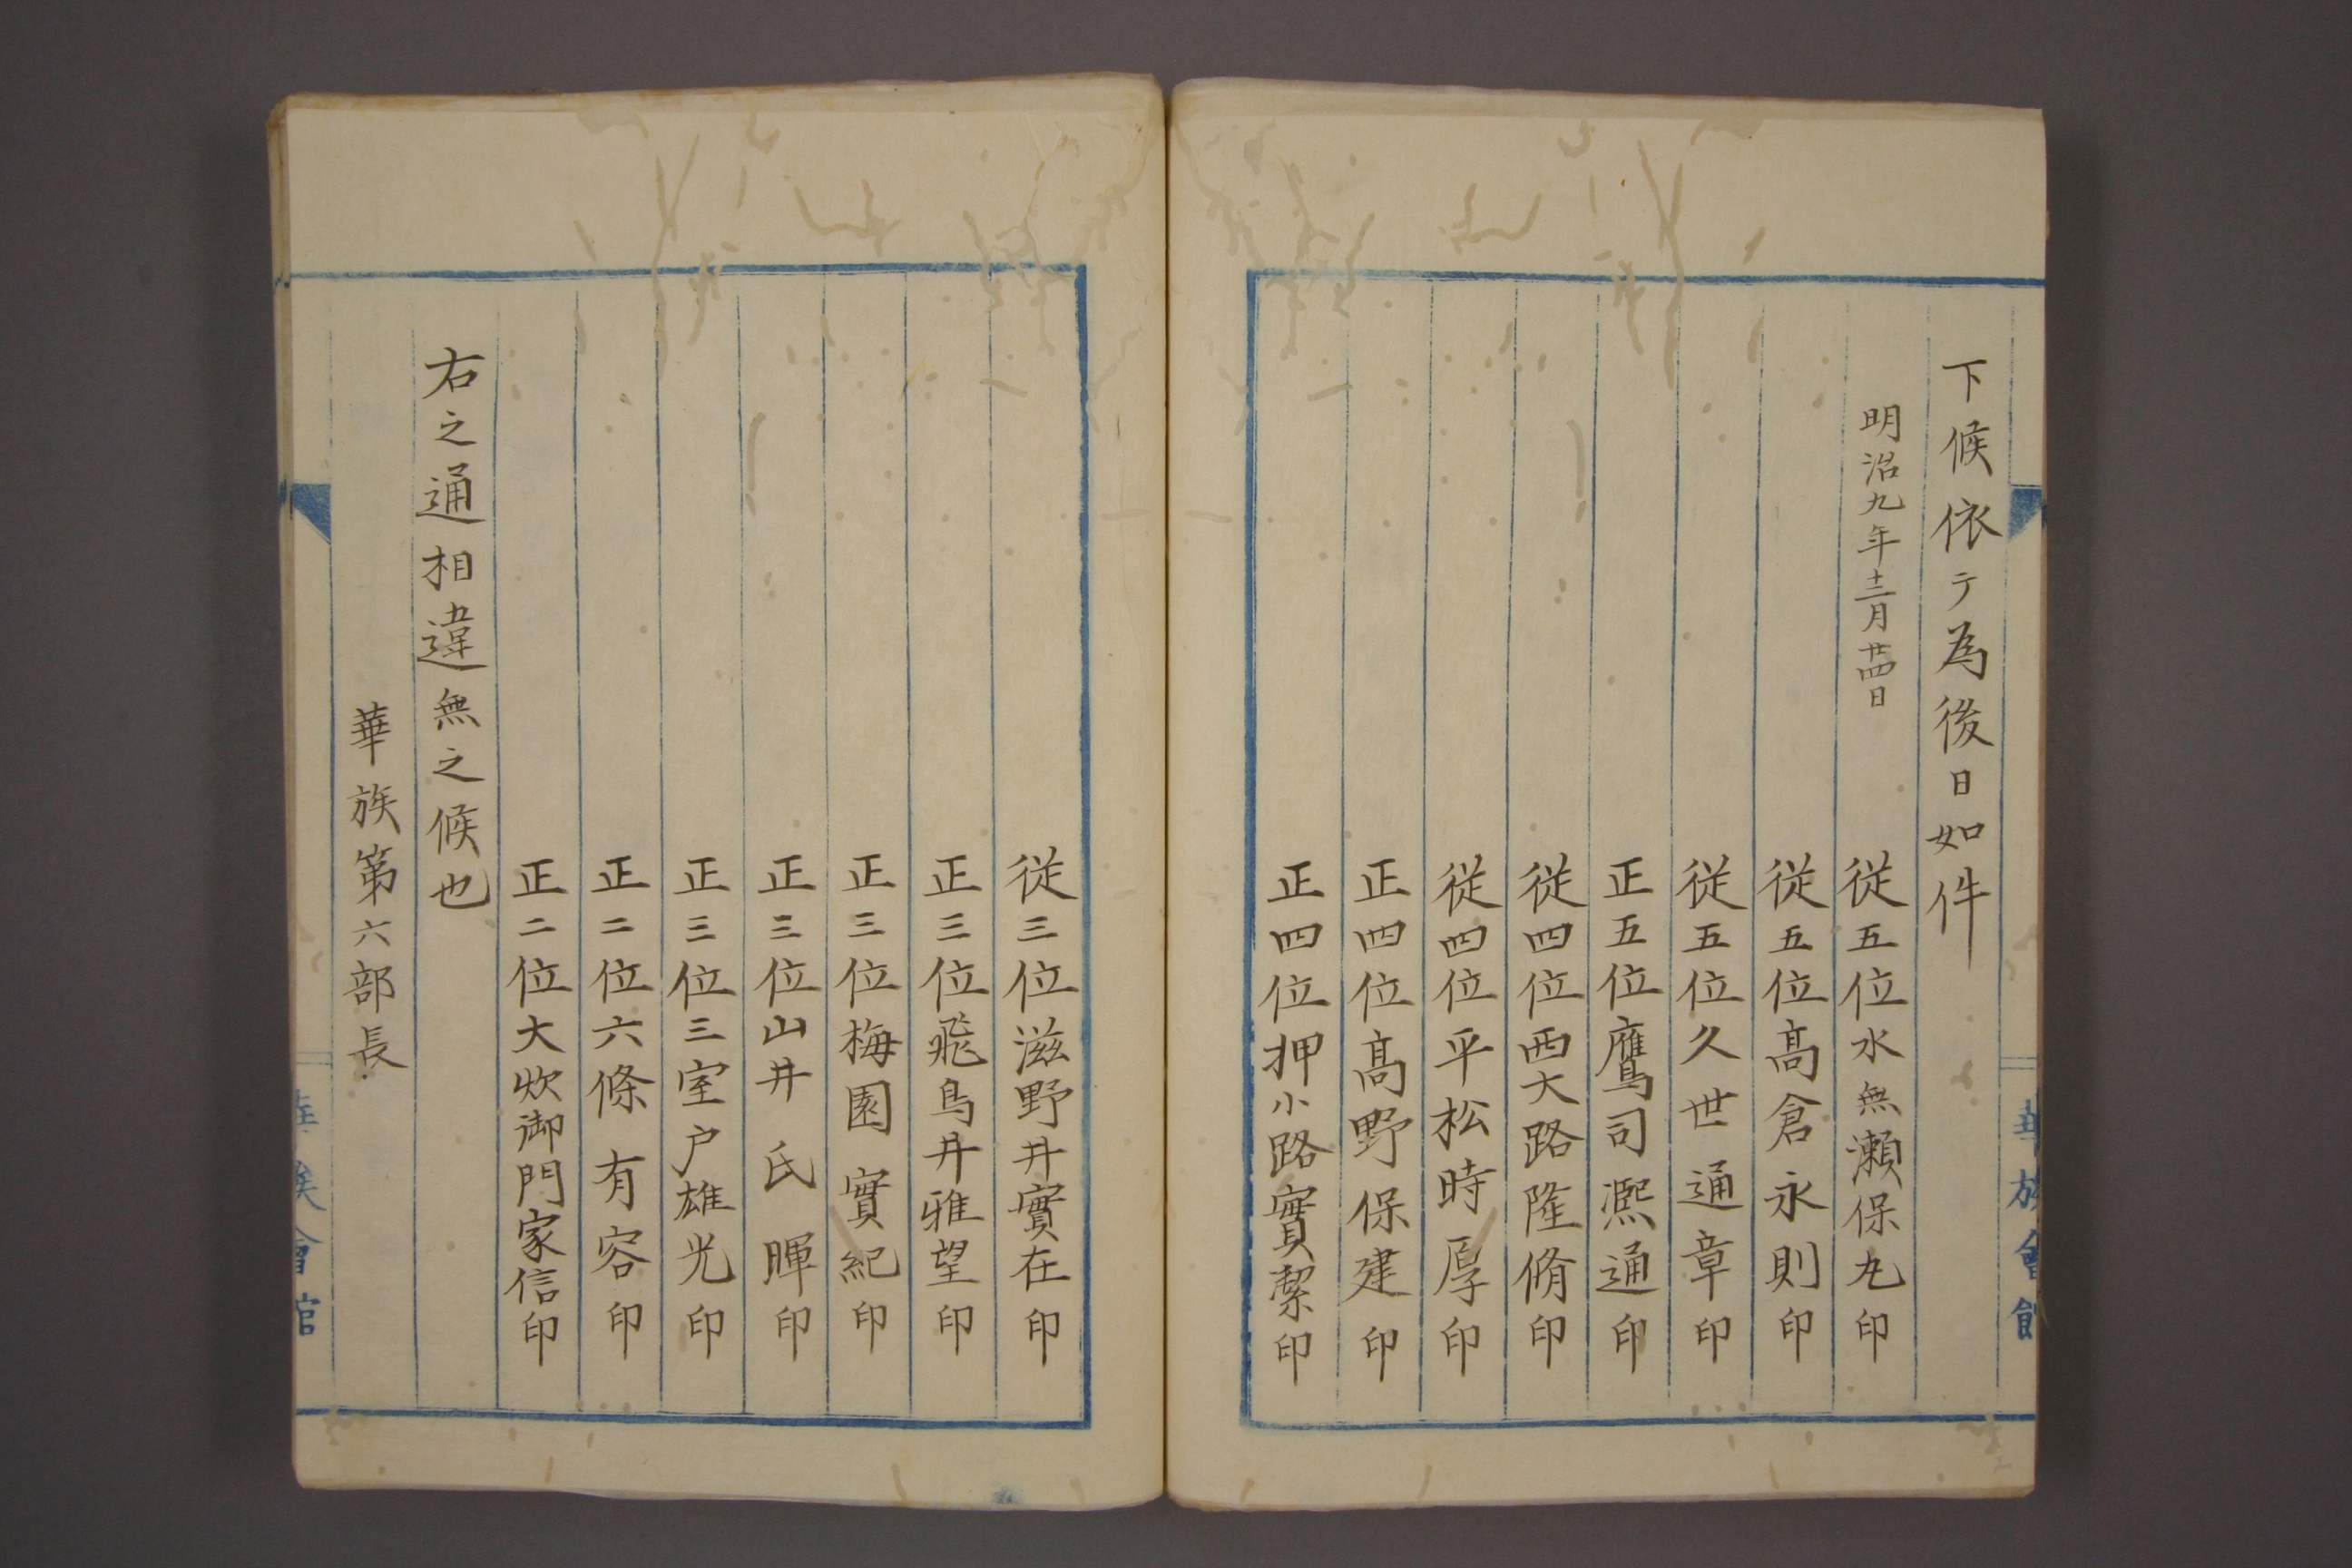 下候依テ為後日如件
明治九年十二月廿四日
従五位水無瀬保丸印
従五位髙倉永則印
従五位久世通章印
正五位鷹司凞通印
従四位西大路隆脩印
従四位平松時厚印
正四位髙野保建印
正四位押小路實潔印
華族會館
従三位滋野井實在印
正三位飛鳥井雅望印
正三位梅園實紀印
正三位山井氏暉印
正三位三室户雄光印
正二位六條有容印
正二位大炊御門家信印
右之通相違無之候也
華族第六部長
華族會館